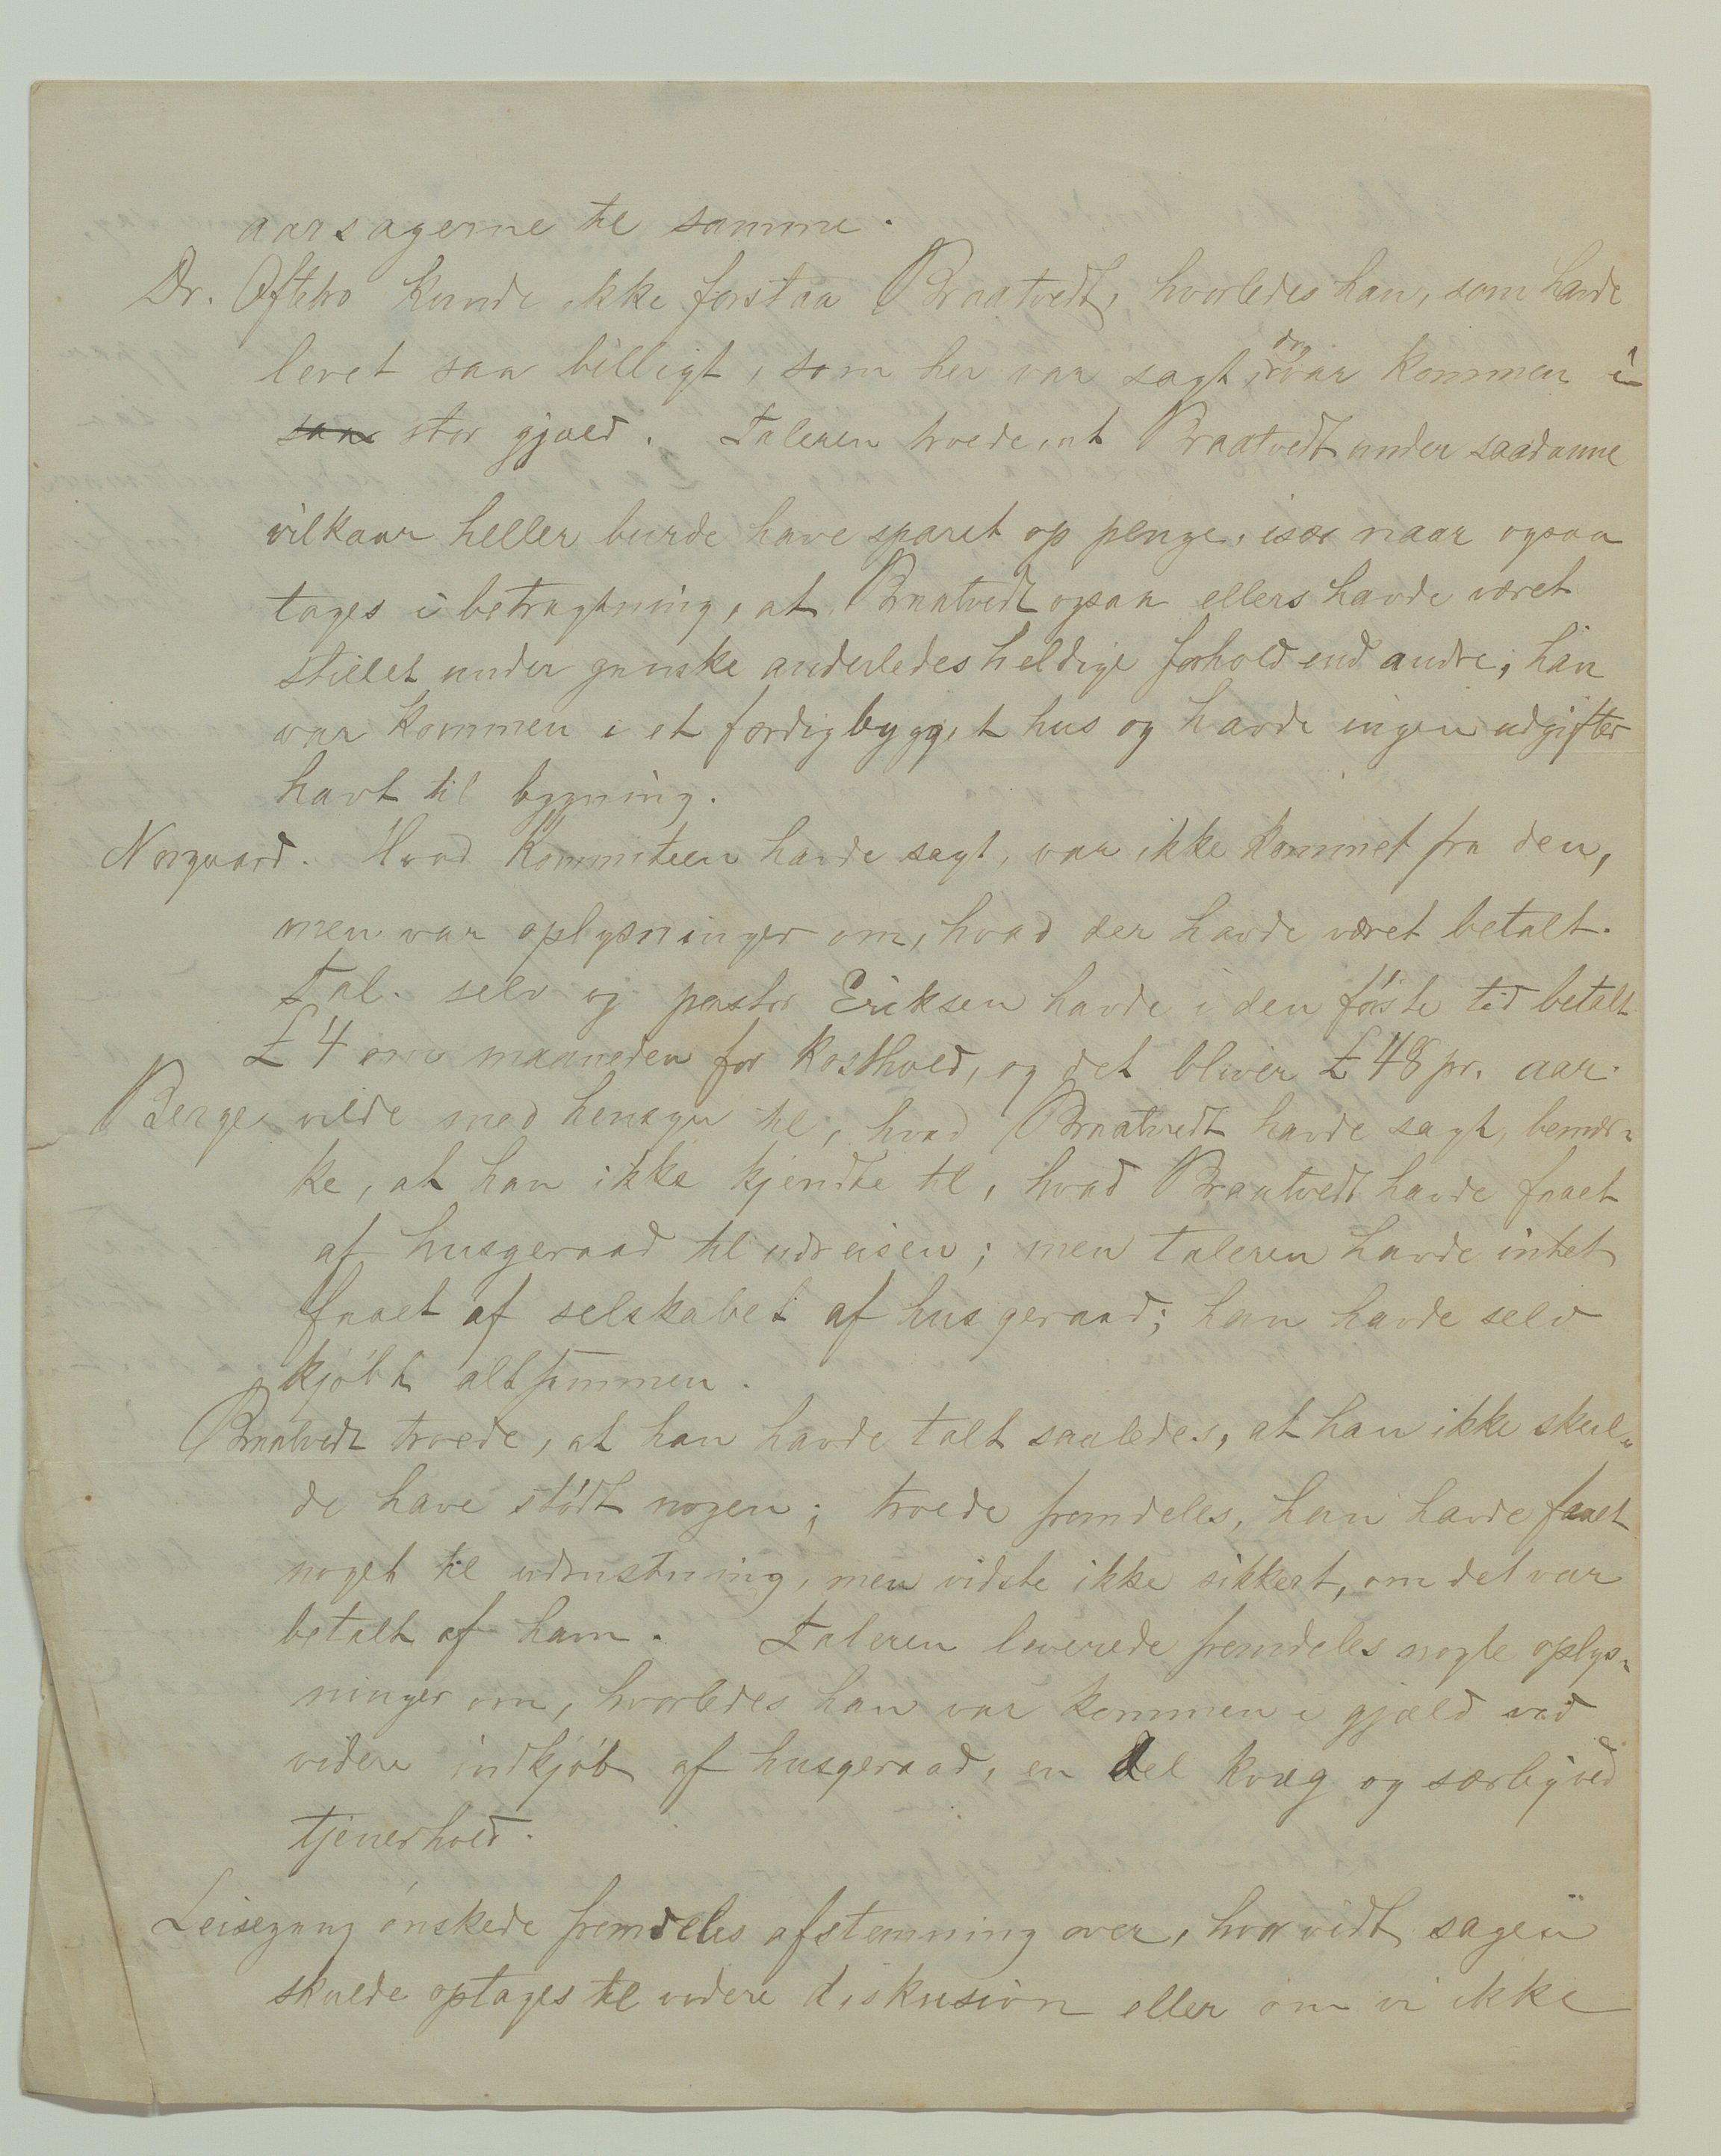 aarsagerne til samme.
Dr. Oftebro kunde ikke forstaa Braatvedt, hvorledes han, som havde
levet saa billigt, som her var sagt, dog var kommen i
saa stor gjæld. Taleren troede, at Braatvedt under saadanne
vilkaar heller burde have sparet op penge, især naar ogsaa
tages i betragtning, at Braatvedt ogsaa ellers havde været
stillet under ganske anderledes heldige forhold end andre; han
var kommen i et færdigbygget hus og havde ingen udgifter
havt til bygning.
Norgaard. Hvad Kommiteen havde sagt, var ikke kommet fra den,
men var oplysninger om, hvad der havde været betalt.
Tal. selv og pastor Eriksen havde i den første tid betalt
£ 4 om maaneden for kosthold, og det bliver £ 48 pr. aar.
Berge vilde med hensyn til, hvad Braatvedt havde sagt, bemær-
ke, at han ikke kjendte til, hvad Braatvedt havde faaet
af husgeraad til udreisen; men taleren havde intet
faaet af selskabet af husgeraad; han havde selv
kjøbt altsammen.
Braatvedt troede, at han havde talt saaledes, at han ikke skul-
de have stødt nogen; troede fremdeles, han havde faaet
noget til udrustning, men vidste ikke sikkert, om det var
betalt af ham. Taleren leverede fremdeles nogle oplys-
ninger om, hvorledes han var kommen i gjæld ved
videre indkjøb af husgeraad, en del kvæg og særlig ved
tjenerhold.
Leisegang ønskede fremdeles afstemning over, hvorvidt sagen
skulde optages til videre diskusion eller om vi ikke